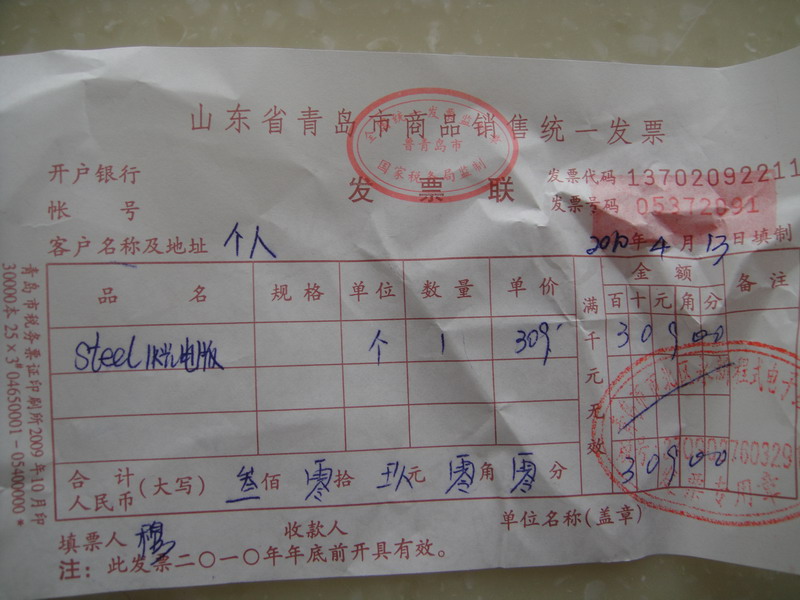 山东省青岛市商品销售统一发票
鲁青岛市
国家税务局监制
开户银行
发票联
发票代码 13702092211
帐号
发票号码 05372091
客户名称及地址 个人
2010年4月13日填制
品名 规格 单位 数量 单价 金额 备注
满千元无效 百十元角分
Steel 个 1 309 30900
30900
合计人民币(大写) 叁佰 零拾 玖元 零角 零分
填票人 收款人 单位名称(盖章)
注:此发票二〇一〇年年底前开具有效。
青岛市税务票证印刷所2009年10月印
30000本 25×3# 04650001-05400000*
发票专用章